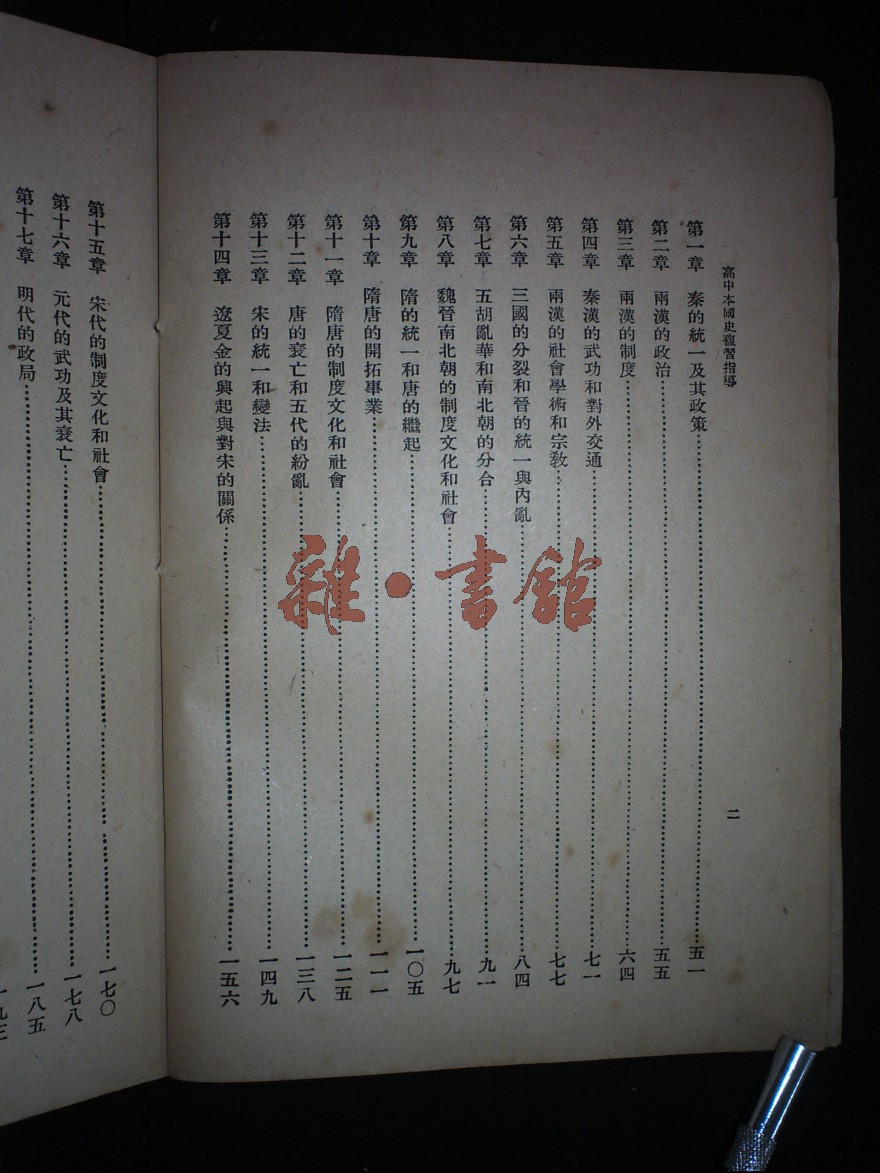 高中本國史複習指導
二
第一章 秦的統一及其政策……五一
第二章 兩漢的政治……五五
第三章 兩漢的制度……六四
第四章 秦漢的武功和對外交通……七一
第五章 兩漢的社會學術和宗教……七七
第六章 三國的分裂和晉的統一與內亂……八四
第七章 五胡亂華和南北朝的分合……九一
第八章 魏晉南北朝的制度文化和社會……九七
第九章 隋的統一和唐的繼起……一〇五
第十章 隋唐的開拓事業……一一一
第十一章 隋唐的制度文化和社會……一二五
第十二章 唐的衰亡和五代的紛亂……一三八
第十三章 宋的統一和變法……一四九
第十四章 遼夏金的興起與對宋的關係……一五六
第十五章 宋代的制度文化和社會……一七〇
第十六章 元代的武功及其衰亡……一七八
第十七章 明代的政局……一八五
雜·書館